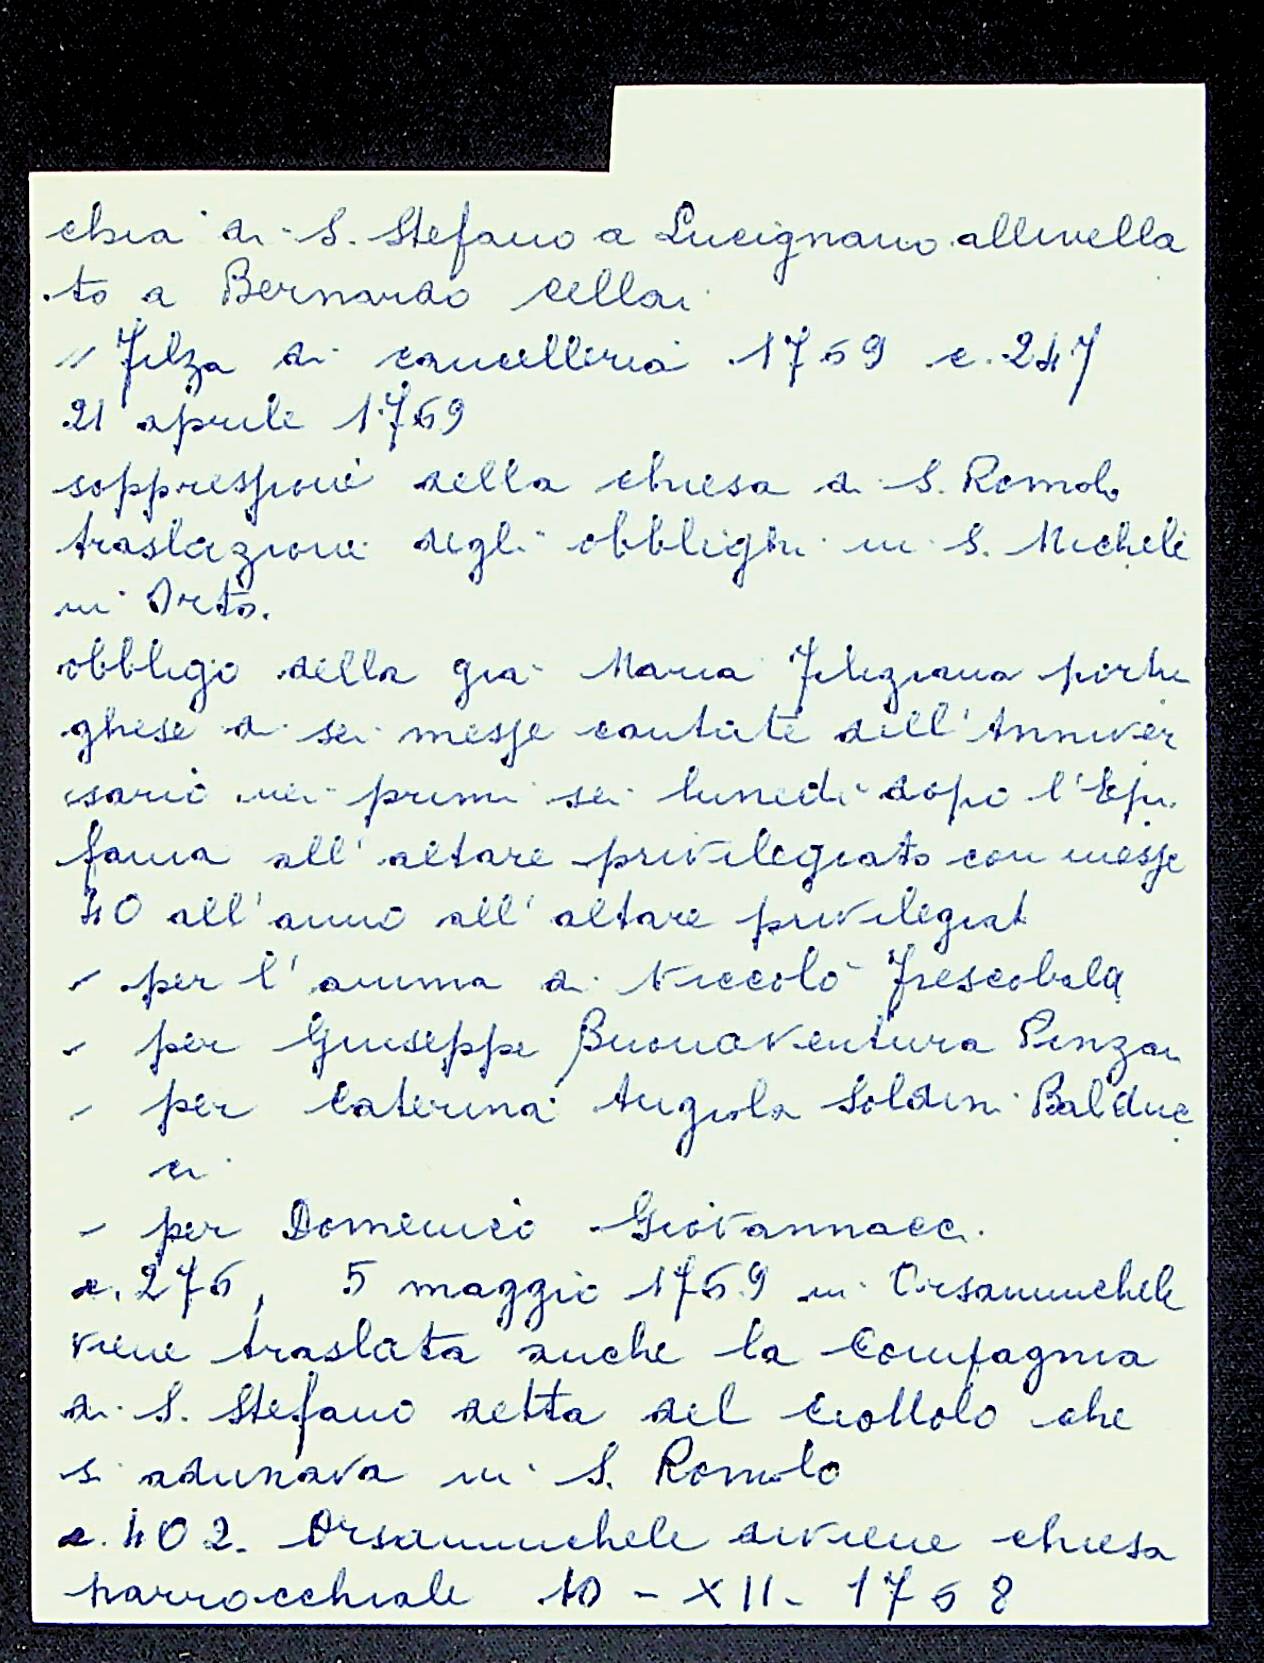 chia di S. Stefano a Lucignano allivella
to a Bernardo Cellai
// Filza di cancelleria 1769 c. 247
21 aprile 1769
soppressione della chiesa di S. Romolo
traslazione degli obblighi in S. Michele
in Orto.
obbligo della già Maria Feliziana portu
ghese di sei messe cantate dell'Anniver
sario nei primi sei lunedì dopo l'Epi
fania all'altare privilegiato con messe
40 all'anno all'altare privilegiat
- per l'anima di Niccolò Frescobaldi
- per Giuseppe Buonaventura Penzai
- per Caterina Angiola Soldini Balduc
ci
- per Domenico Giovannacci.
c. 276, 5 maggio 1769 in Orsanmichele
viene traslata anche la Compagnia
di S. Stefano detta del Ciottolo che
si adunava in S. Romolo
c. 402. Orsanmichele diviene chiesa
parrocchiale 10 - XII - 1768